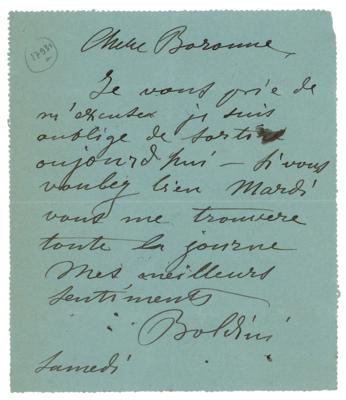 Chere Baronne,
Je vous prie de
m'excuser je suis
oublige de sortir
oujourd hui — si vous
voulez bien Mardi
vous me trouvere
toute la journe
Mes meilleurs
sentiments
Boldini
samedi